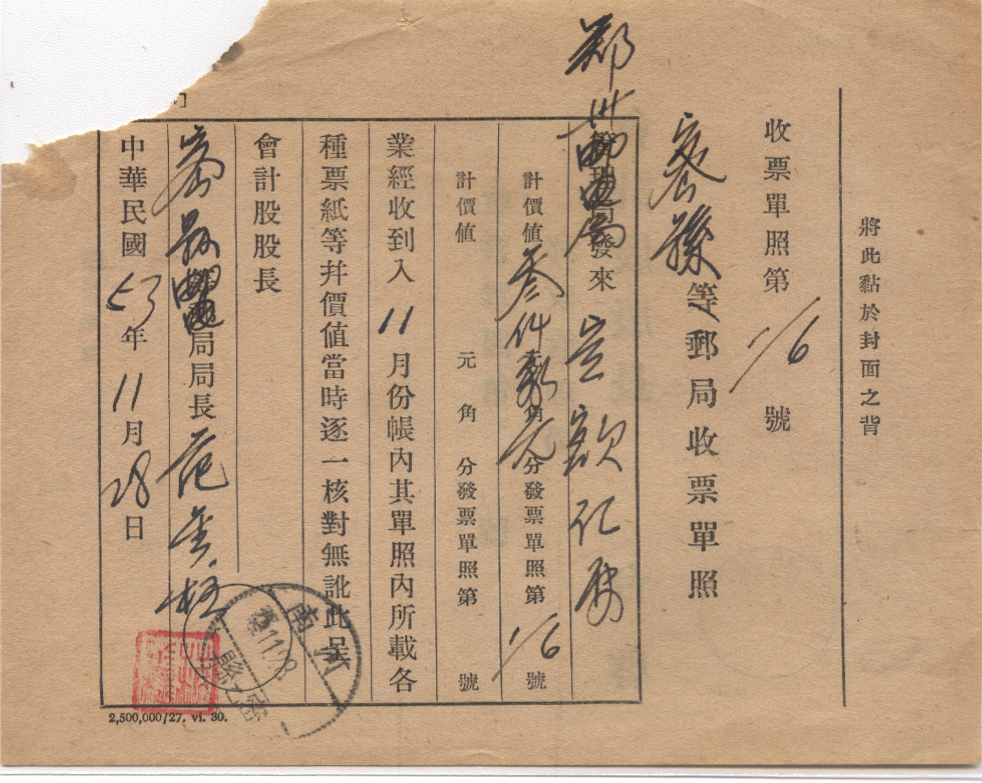 將此黏於封面之背
收票單照第 1/6 號
密縣等郵局收票單照
鄭州郵電局發來空款化驗
計價值叁件彩元角元分發票單照第 1/6 號
計價值 元 角 分發票單照第 號
業經收到入 11 月份帳內其單照內所載各
種票紙等幷價值當時逐一核對無訛此呈
會計股股長
密縣郵電局局長范
中華民國 53 年 11 月 28 日
2,500,000/27. vi. 30.
河南
密縣